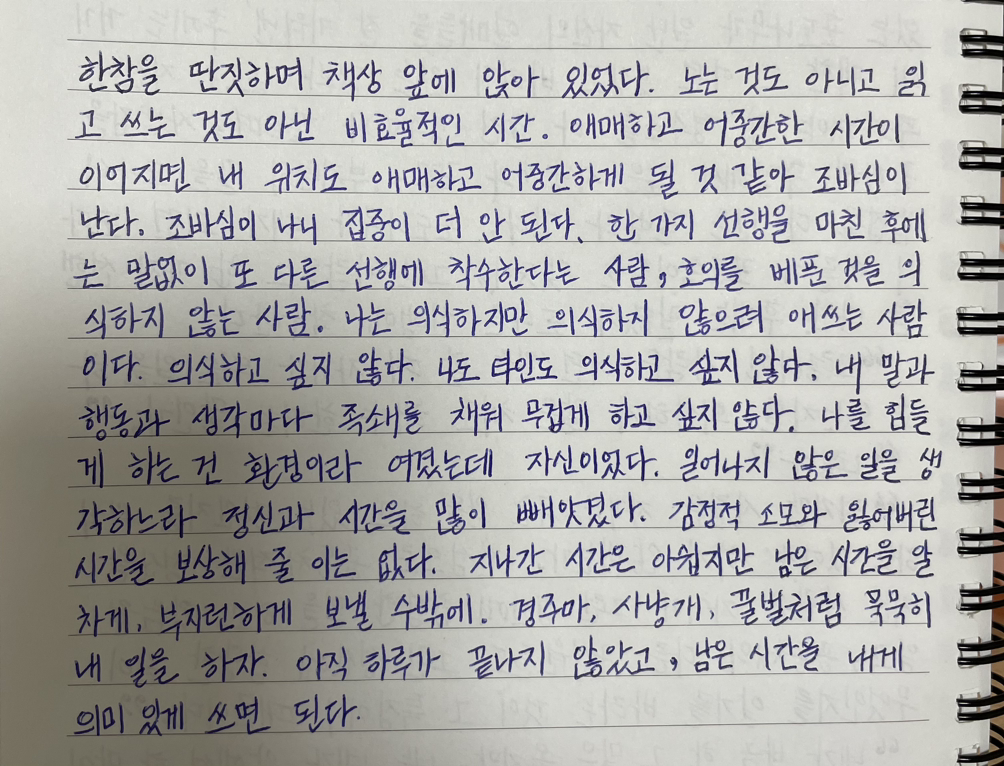 한참을 딴짓하며 책상 앞에 앉아 있었다. 노는 것도 아니고 읽
고 쓰는 것도 아닌 비효율적인 시간. 애매하고 어중간한 시간이
이어지면 내 위치도 애매하고 어중간하게 될 것 같아 조바심이
난다. 조바심이 나니 집중이 더 안 된다. 한 가지 선행을 마친 후에
는 말없이 또 다른 선행에 착수한다는 사람, 호의를 베푼 것을 의
식하지 않는 사람. 나는 의식하지만 의식하지 않으려 애쓰는 사람
이다. 의식하고 싶지 않다. 나도 타인도 의식하고 싶지 않다. 내 말과
행동과 생각마다 족쇄를 채워 무겁게 하고 싶지 않다. 나를 힘들
게 하는 건 환경이라 여겼는데 자신이었다. 일어나지 않은 일을 생
각하느라 정신과 시간을 많이 빼앗겼다. 감정적 소모와 잃어버린
시간을 보상해 줄 이는 없다. 지나간 시간은 아쉽지만 남은 시간을 알
차게, 부지런하게 보낼 수밖에. 경주마, 사냥개, 꿀벌처럼 묵묵히
내 일을 하자. 아직 하루가 끝나지 않았고, 남은 시간을 내게
의미 있게 쓰면 된다.